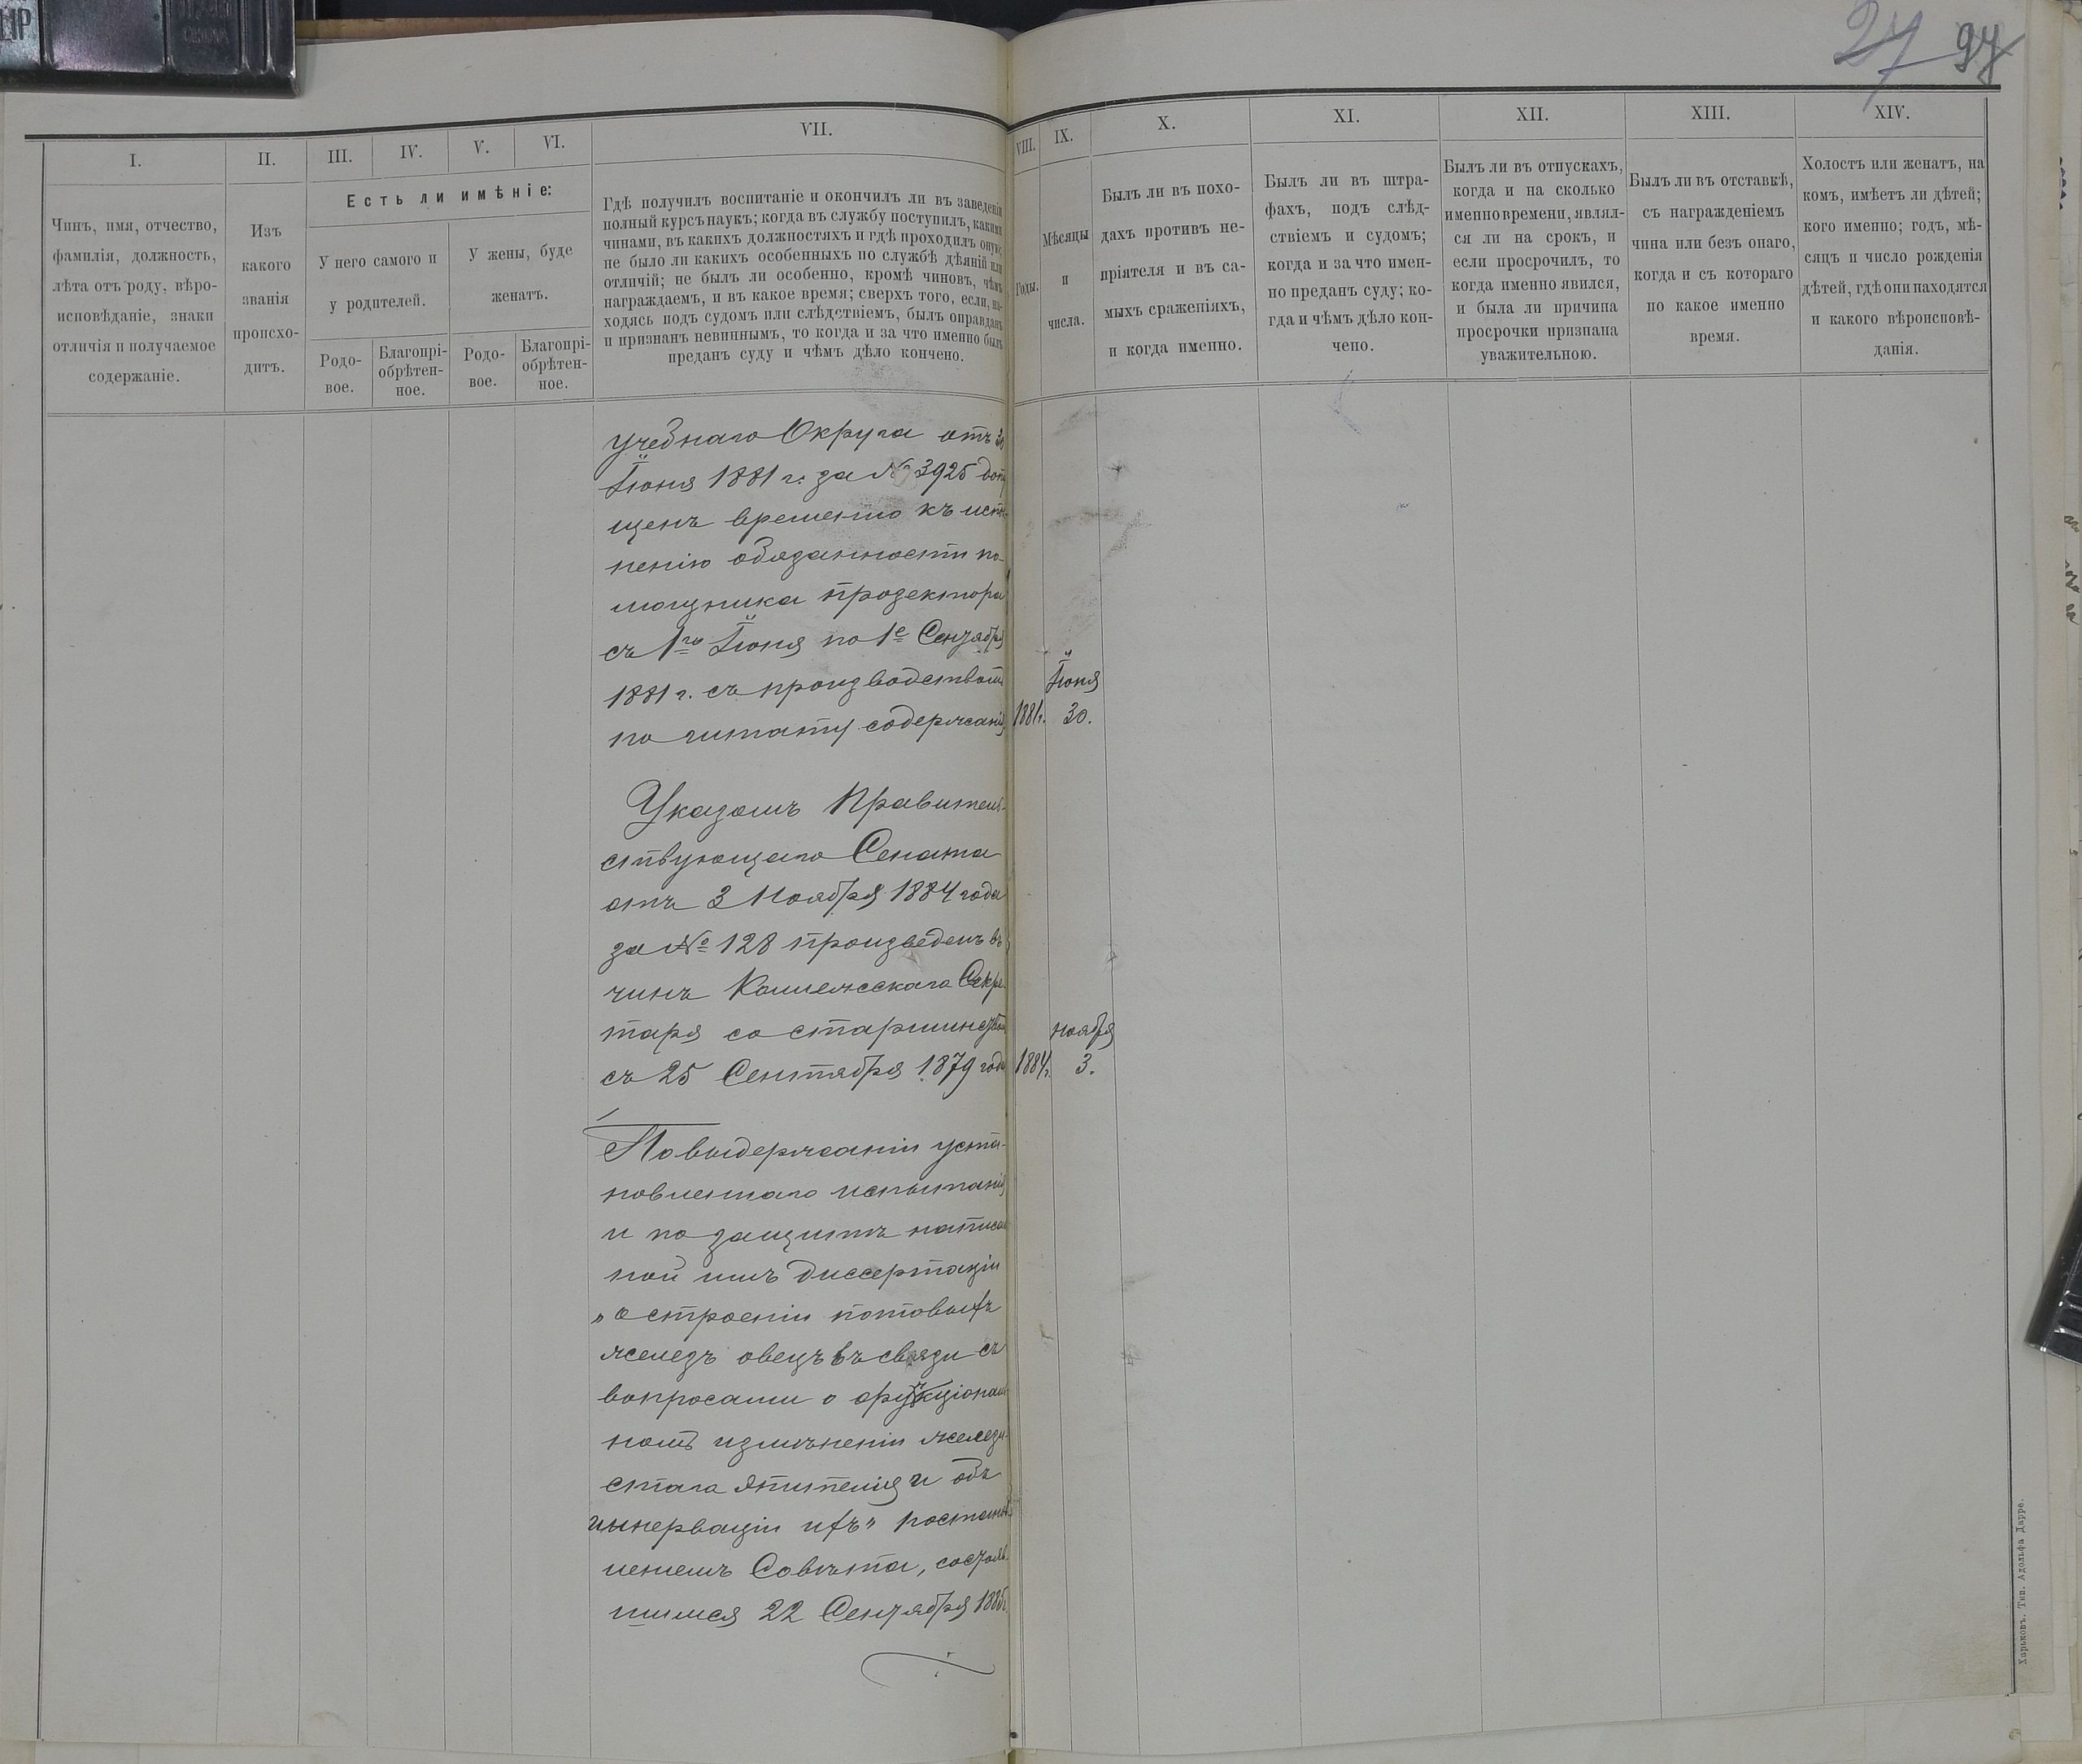 27 97
I.
II.
III.
IV.
V.
VI.
VII.
VIII.
IX.
X.
XI.
XII.
XIII.
XIV.
Чинъ, имя, отчество,
фамилія, должность,
лѣта отъ роду, вѣро-
исповѣданіе, знаки
отличія и получаемое
содержаніе.
Изъ
какого
званія
происхо-
дитъ.
Есть ли имѣніе:
У него самого и
у родителей.
У жены, буде
женатъ.
Родо-
вое.
Благопрі-
обрѣтен-
ное.
Родо-
вое.
Благопрі-
обрѣтен-
ное.
Гдѣ получилъ воспитаніе и окончилъ ли въ заведеніи
полный курсъ наукъ; когда въ службу поступилъ, какими
чинами, въ какихъ должностяхъ и гдѣ проходилъ оную;
не было ли какихъ особенныхъ по службѣ дѣяній или
отличій; не былъ ли особенно, кромѣ чиновъ, чѣмъ
награждаемъ, и въ какое время; сверхъ того, если, на-
ходясь подъ судомъ или слѣдствіемъ, былъ оправданъ
и признанъ невиннымъ, то когда и за что именно былъ
преданъ суду и чѣмъ дѣло кончено.
Годы.
Мѣсяцы
и
числа.
Былъ ли въ похо-
дахъ противъ не-
пріятеля и въ са-
мыхъ сраженіяхъ,
и когда именно.
Былъ ли въ штра-
фахъ, подъ слѣд-
ствіемъ и судомъ;
когда и за что имен-
но преданъ суду; ко-
гда и чѣмъ дѣло кон-
чено.
Былъ ли въ отпускахъ,
когда и на сколько
именно времени, являл-
ся ли на срокъ, и
если просрочилъ, то
когда именно явился,
и была ли причина
просрочки признана
уважительною.
Былъ ли въ отставкѣ,
съ награжденіемъ
чина или безъ онаго,
когда и съ котораго
по какое именно
время.
Холостъ или женатъ, на
комъ, имѣетъ ли дѣтей;
кого именно; годъ, мѣ-
сяцъ и число рожденія
дѣтей, гдѣ они находятся
и какого вѣроисповѣ-
данія.
учебнаго Округа отъ 30
Іюня 1881 г. за № 3925 допу
щенъ временно къ испо
ненію обязанности по-
мощника прозектора
съ 1го Іюня по 1е Сентября
1881 г. съ производствомъ
по штату содержанія
Іюня
1881г. 30.
Указомъ Правитель-
ствующаго Сената
отъ 3 Ноября 1884 года
за № 128 произведенъ въ
чинъ Коллежскаго Секре
таря со старшинством
съ 25 Сентября 1879 года
ноября
1884г. 3.
По выдержаніи уста-
новленнаго испытанія
и по защитѣ написан
ной имъ диссертаціи
„о строеніи потовыхъ
железъ овецъ въ связи съ
вопросами о функціонал
номъ измѣненіи желези
стаго эпителія и объ
иннерваціи ихъ" постанов
леніемъ Совѣта, состояв
шимся 22 Сентября 1886г.
Харьковъ. Тип. Адольфа Дарре.